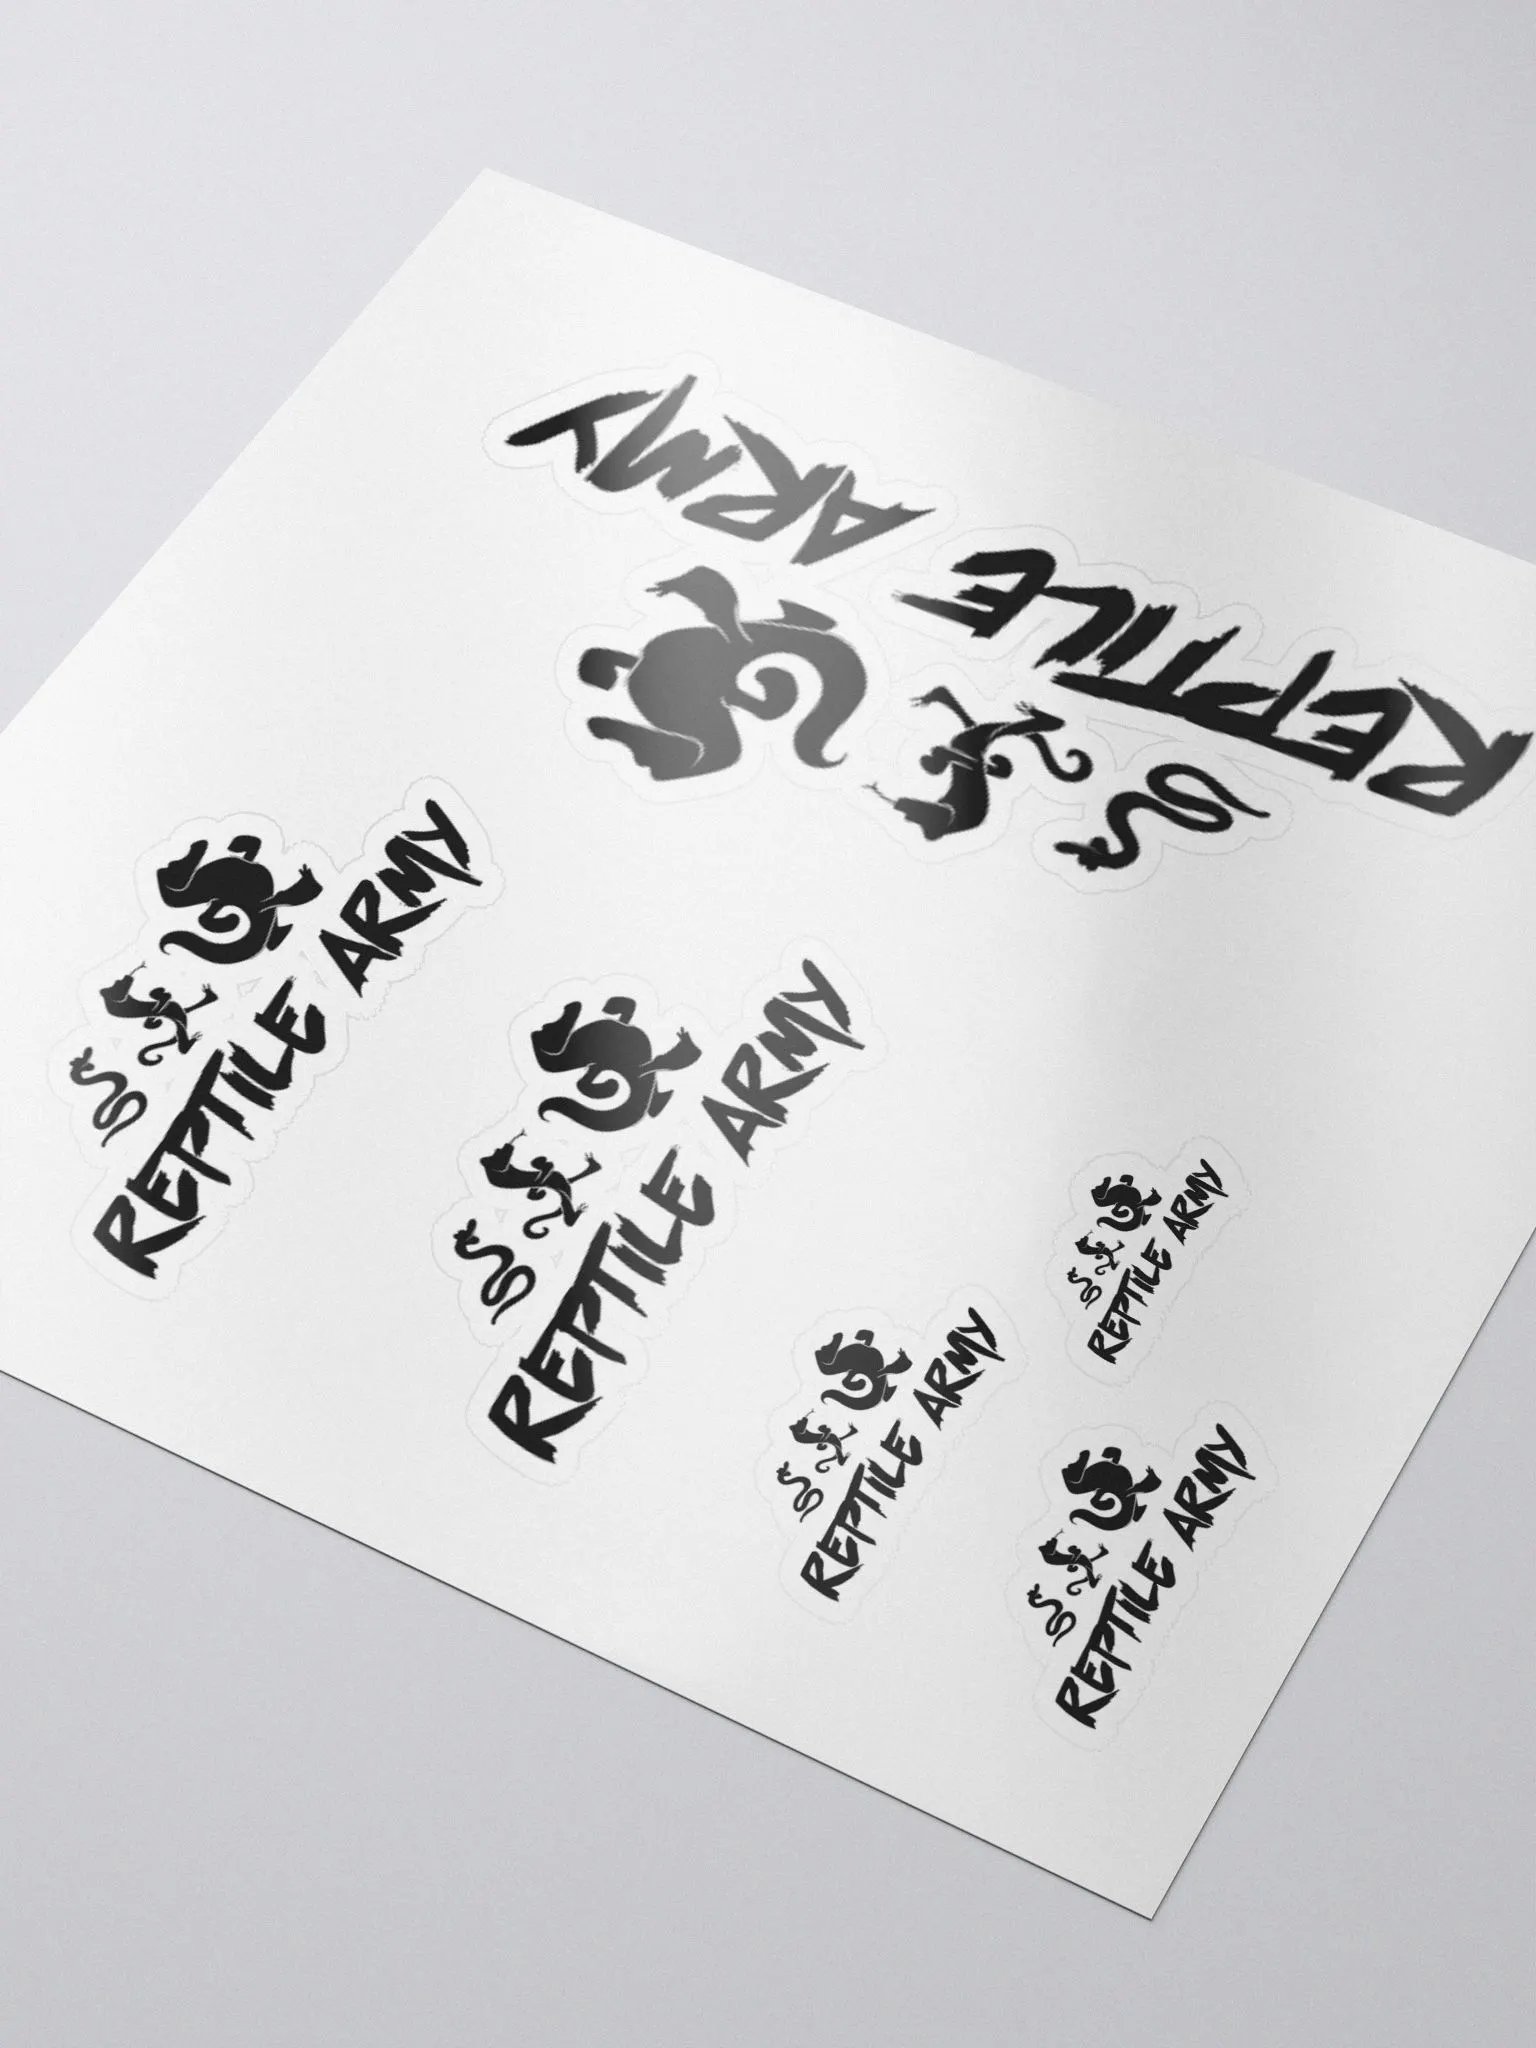 REPTILE ARMY
REPTILE ARMY
REPTILE ARMY
REPTILE ARMY
REPTILE ARMY
REPTILE ARMY